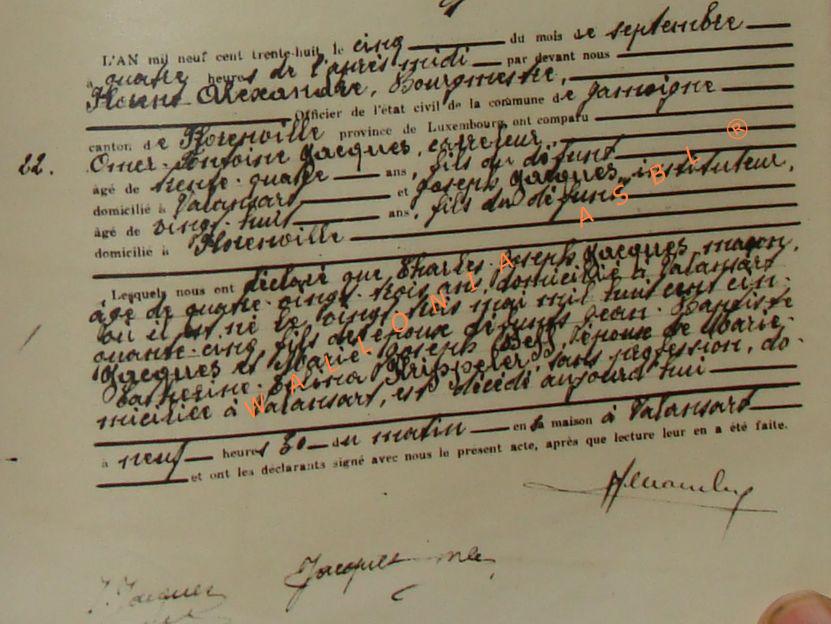 L'AN mil neuf cent trente-huit, le cinq du mois de septembre
à quatre heures de l'après midi par devant nous
Florent Alexandre, Bourgmestre,
Officier de l'état civil de la commune de Jamoigne
canton de Florenville province de Luxembourg ont comparu
22. Omer-Antoine Jacques, carreleur,
âgé de trente-quatre ans, fils du défunt
domicilié à Valansart et Joseph Jacques, instituteur,
âgé de vingt-huit ans, fils du défunt
domicilié à Florenville
Lesquels nous ont déclaré que Charles-Joseph Jacques, maçon,
âgé de quatre-vingt-trois ans, domicilié à Valansart
où il est né le vingt trois mai mil huit cent cin-
quante-cinq, fils des époux défunts Jean-Baptiste
Jacques et Marie-Joseph époux de Marie-
Catherine- sans profession, do-
miciliée à Valansart, est décédé aujourd'hui
à neuf heures 30 du matin en sa maison à Valansart
et ont les déclarants signé avec nous le présent acte, après que lecture leur en a été faite.
J. Jacques
WALLONIA ASBL ®